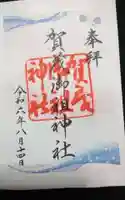 奉拝
賀茂御祖神社
令和六年八月十四日
賀茂
神社